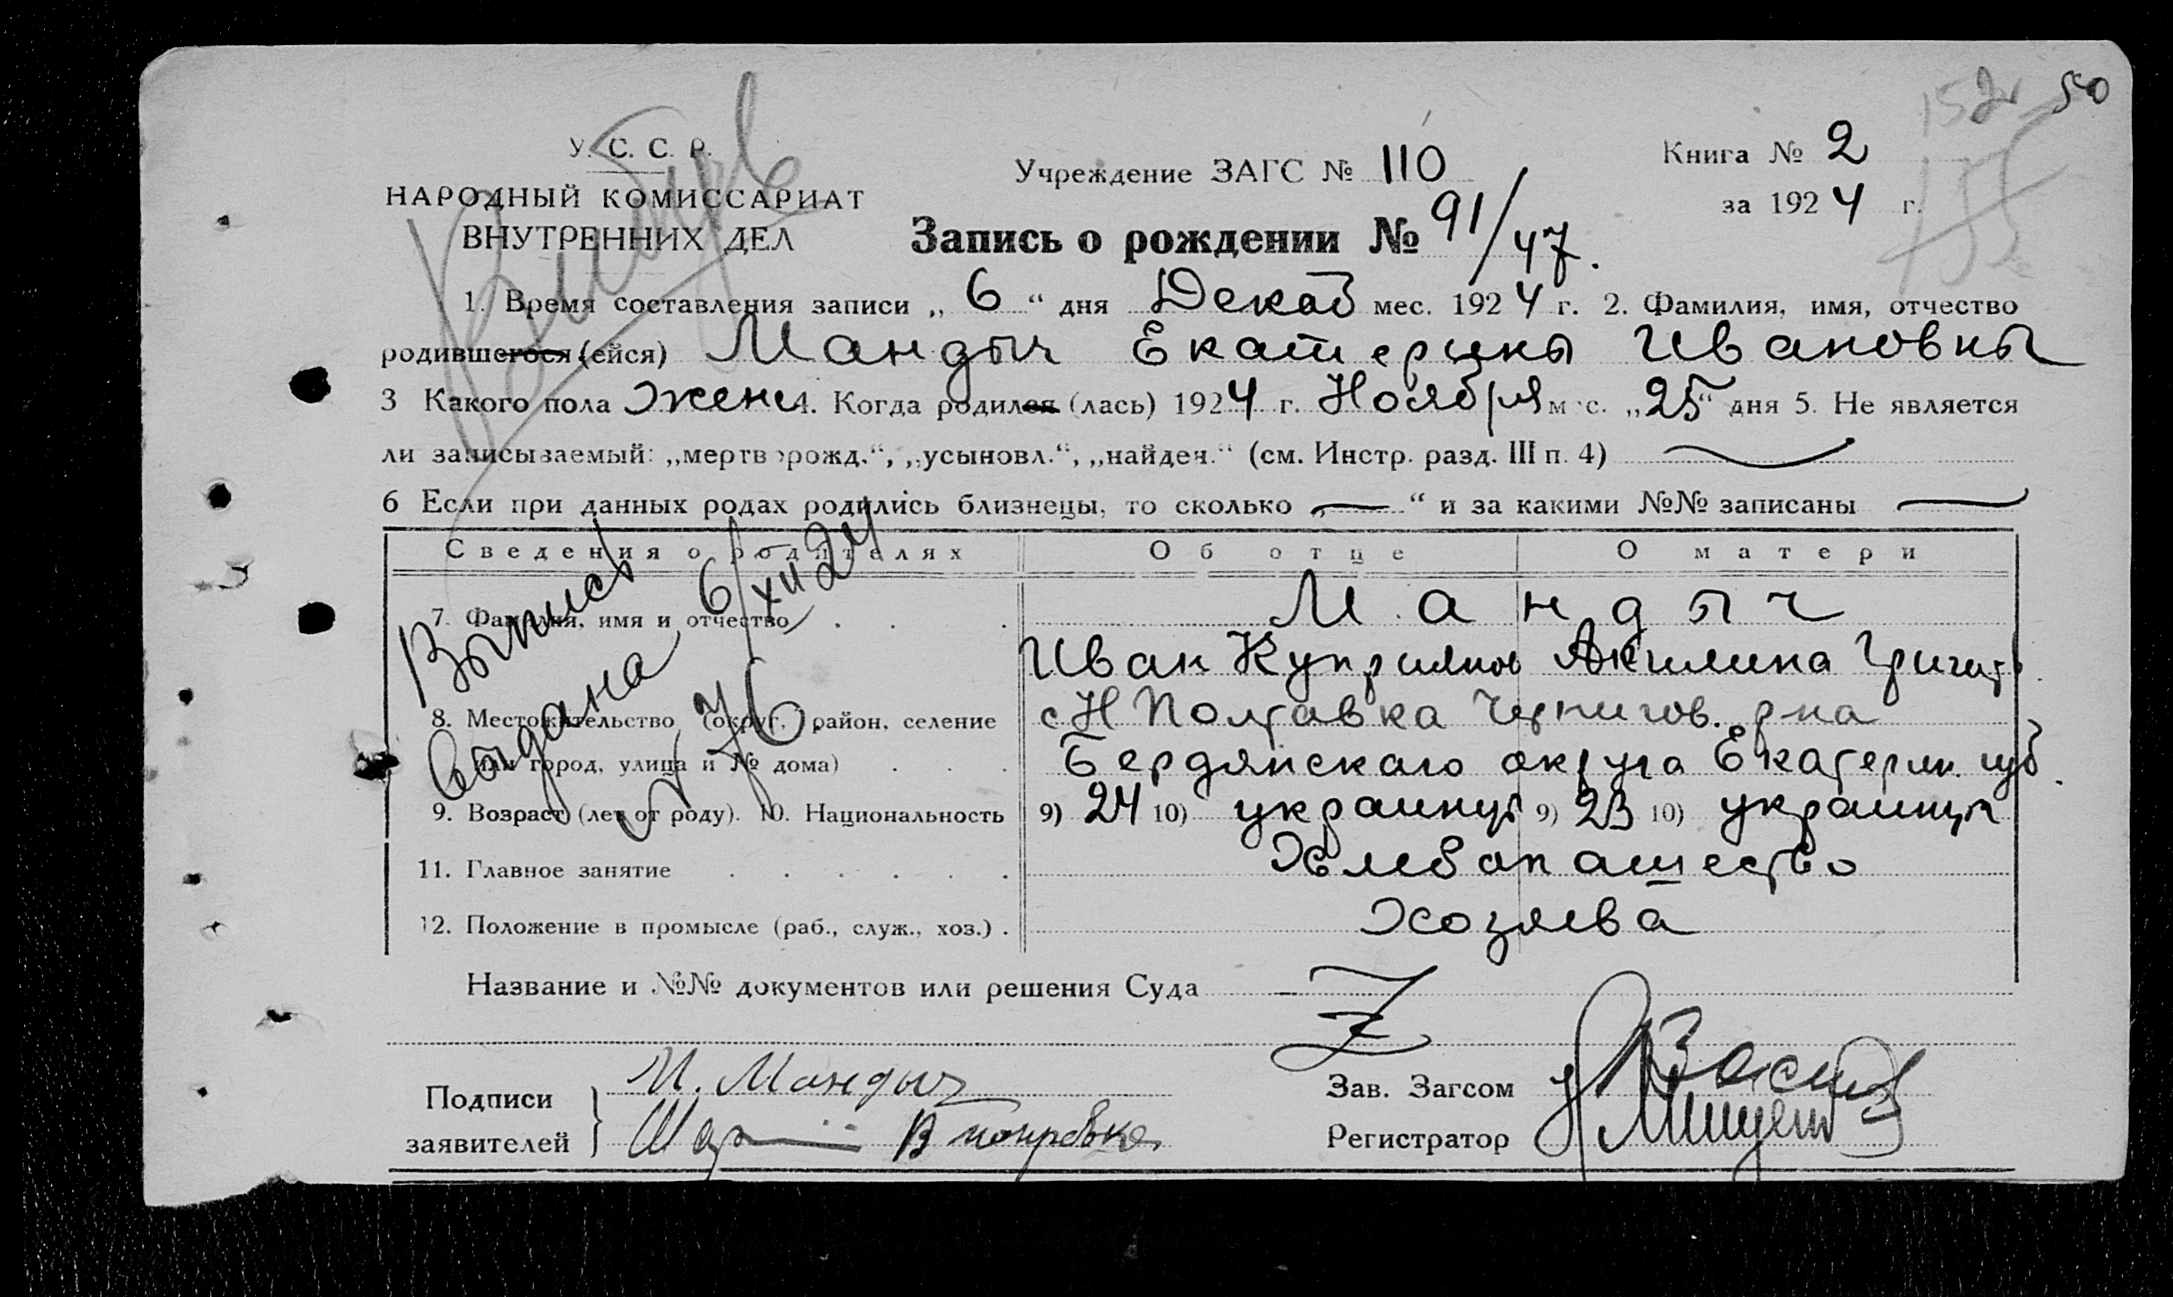 50
У. С. С. Р.
НАРОДНЫЙ КОМИССАРИАТ
ВНУТРЕННИХ ДЕЛ
Учреждение ЗАГС № 110
Книга № 2
за 1924 г.
Запись о рождении № 91/47.
1. Время составления записи „6“ дня Декаб мес. 1924 г. 2. Фамилия, имя, отчество
родившегося (ейся) Мандыч Екатерины Ивановны
3 Какого пола жен 4. Когда родился (лась) 1924 г. Ноября мес. „25“ дня 5. Не является
ли записываемый: „мертворожд.“, „усыновл.“, „найден.“ (см. Инстр. разд. III п. 4)
6 Если при данных родах родились близнецы, то сколько „—“ и за какими №№ записаны —
Сведения о родителях Об отце О матери
7. Фамилия, имя и отчество Мандыч
Иван Куприянов Акилина Григор
8. Местожительство (округ, район, селение с Н Полтавка Чернигов. р-на
(или город, улица и № дома) Бердянскаго округа Екатерин. губ.
9. Возраст (лет от роду). 10. Национальность 9) 24 10) украинцы 9) 23 10) украинцы
11. Главное занятие Хлебопашество
12. Положение в промысле (раб., служ., хоз.) Хозяева
Выпись
выдана 6/XII 24
№ 76
Название и №№ документов или решения Суда
Подписи
заявителей
И. Мандыч
Зав. Загсом
Регистратор